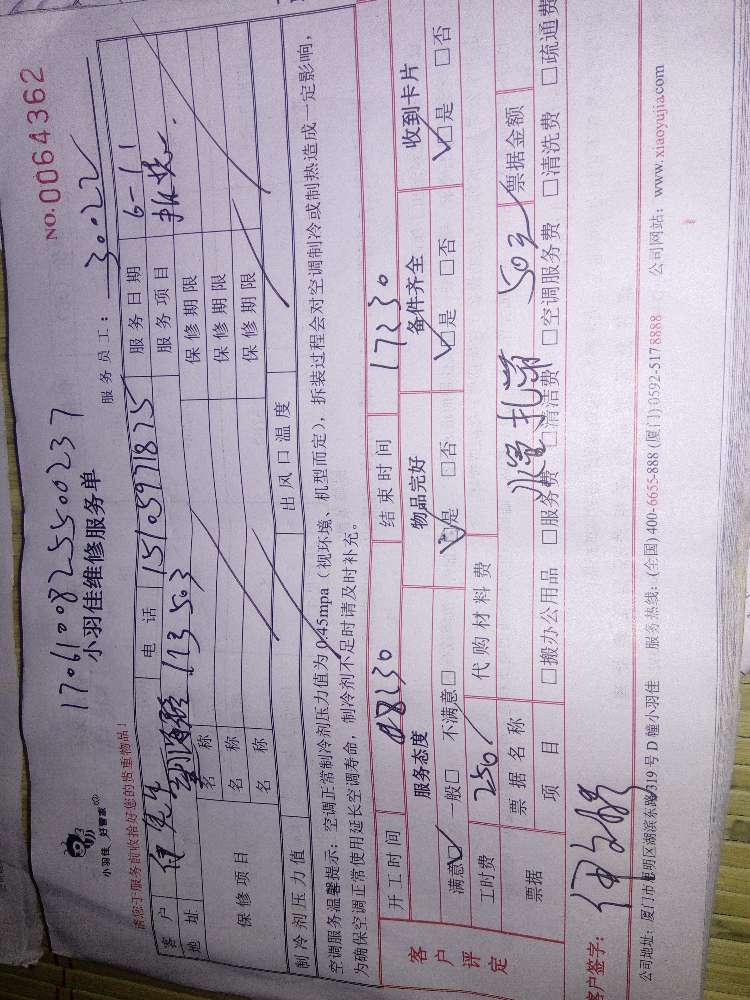 NO.0064362
1706100825500237
小羽佳 好管家
小羽佳维修服务单
服务员工: 30022
请您于服务前收拾好您的贵重物品!
客户 电话 15105971875 服务日期 6-11
地址 173 503 服务项目
保修项目 名称 保修期限
名称 保修期限
名称 保修期限
制冷剂压力值 出风口温度
空调服务温馨提示: 空调正常制冷剂压力值为0.45mpa(视环境、机型而定), 拆装过程会对空调制冷或制热造成一定影响,
为确保空调正常使用延长空调寿命, 制冷剂不足时请及时补充。
客户评定 开工时间 08:30 结束时间 17:30
服务态度 物品完好 备件齐全 收到卡片
满意☑ 一般□ 不满意□ ☑是 □否 ☑是 □否 ☑是 □否
工时费 250 代购材料费
票据 票据名称 503 票据金额
项目 □搬办公用品 □服务费 □清洁费 □空调服务费 □清洗费 □疏通费
客户签字:
公司地址: 厦门市思明区湖滨东路319号D幢小羽佳 服务热线: (全国)400-6655-888 (厦门)0592-5178888 公司网站: www.xiaoyujia.com